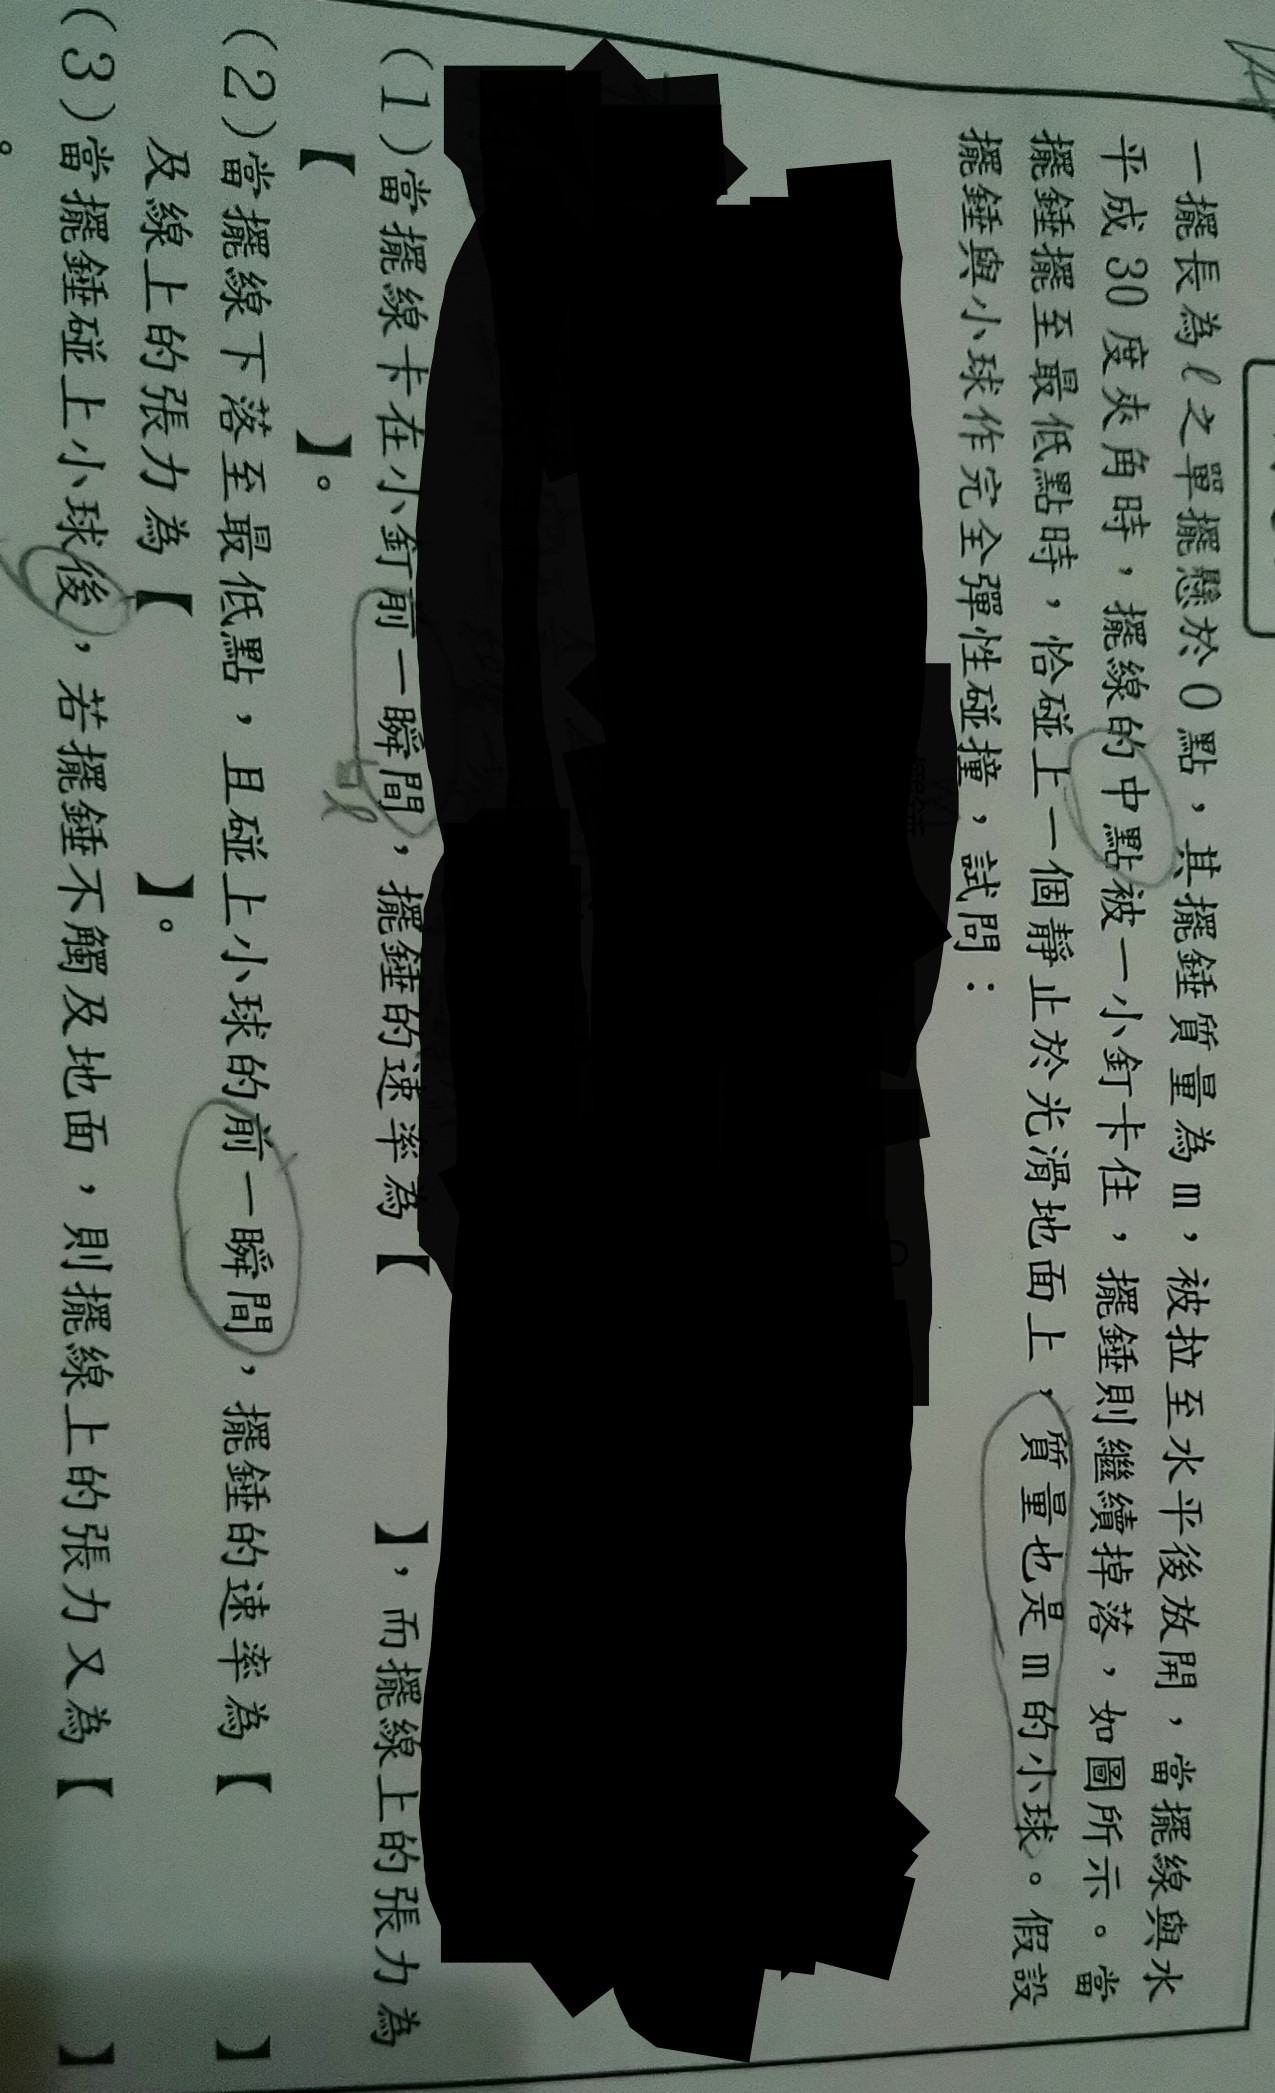 一擺長為ℓ之單擺懸於O點，其擺錘質量為m，被拉至水平後放開，當擺線與水
平成30度夾角時，擺線的中點被一小釘卡住，擺錘則繼續掉落，如圖所示。當
擺錘擺至最低點時，恰碰上一個靜止於光滑地面上，質量也是m的小球。假設
擺錘與小球作完全彈性碰撞，試問：
(1)當擺線卡在小釘前一瞬間，擺錘的速率為【 】，而擺線上的張力為
【 】。
(2)當擺線下落至最低點，且碰上小球的前一瞬間，擺錘的速率為【 】
及線上的張力為【 】。
(3)當擺錘碰上小球後，若擺錘不觸及地面，則擺線上的張力又為【 】
。